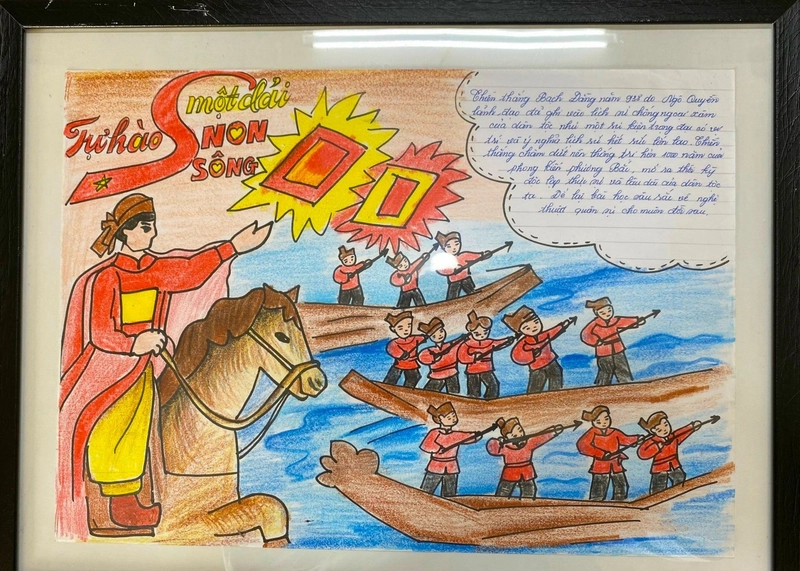 Tự hào
một dải
NON
SÔNG
Chiến thắng Bạch Đằng năm 938 do Ngô Quyền
lãnh đạo đã ghi vào lịch sử chống ngoại xâm
của dân tộc như một sự kiện trọng đại có vị
trí và ý nghĩa lịch sử hết sức lớn lao. Chiến
thắng chấm dứt nền thống trị hơn 1000 năm của
phong kiến phương Bắc, mở ra thời kỳ
độc lập thực sự và lâu dài của dân tộc
ta. Để lại bài học sâu sắc về nghệ
thuật quân sự cho muôn đời sau.